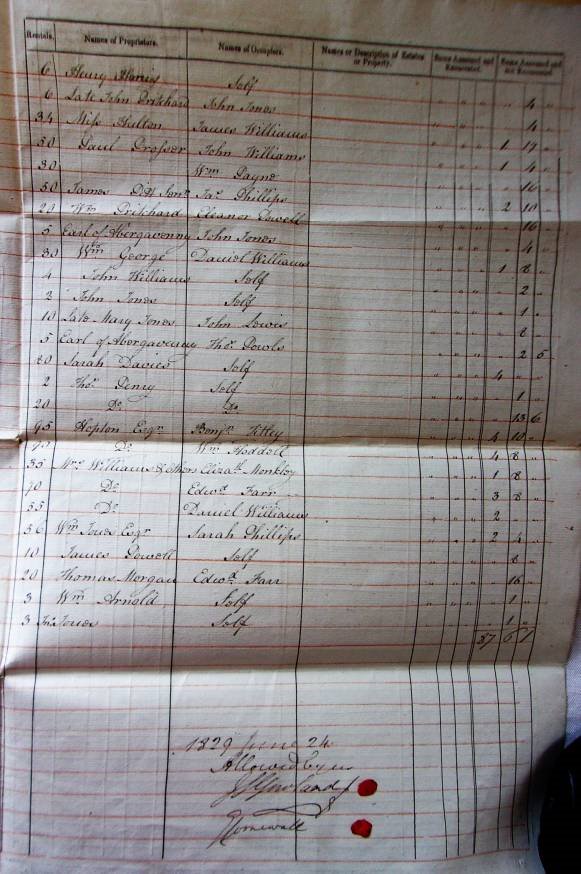 Rentals. Names of Proprietors. Names of Occupiers. Names or Description of Estates or Property. Sums Assessed and Exonerated. Sums Assessed and not Exonerated.
6 Henry Self
6 Late John Pritchard John Jones " 4 "
34 Miss Hulton James Williams " 4 "
50 Paul Prosser John Williams 1 17 "
30 Wm Payne 1 4 "
30 James Jas Phillips " 16 "
29 Wm Pritchard Eleanor Powell 2 10 "
5 Earl of Abergavenny John Jones " 16 "
30 Wm George Daniel Williams " 4 "
4 John Williams Self 1 8 "
2 John Jones Self " 2 "
10 Late Mary Jones John Lewis " 1 "
5 Earl of Abergavenny Thos Powls " 8 "
80 Sarah Davies Self " 2 6
2 Thos Penry Self 4 " "
20 Do Do " 1 "
95 Hopton Esqr Benjn " 13 6
90 Do Wm Hoddell 4 10 "
35 Mrs Williams & others Elizath Monkley 4 8 "
70 Do Edwd Farr 1 8 "
55 Do Daniel Williams 3 8 "
56 Wm Jones Esqr Sarah Phillips 2 " "
10 James Powell Self 2 4 "
20 Thomas Morgan Edwd Farr " 8 "
3 Wm Arnold Self " 16 "
3 Jno Jones Self " 1 "
" 1 "
37 6 1
1829 June 24
Allowed by us
Cornewall